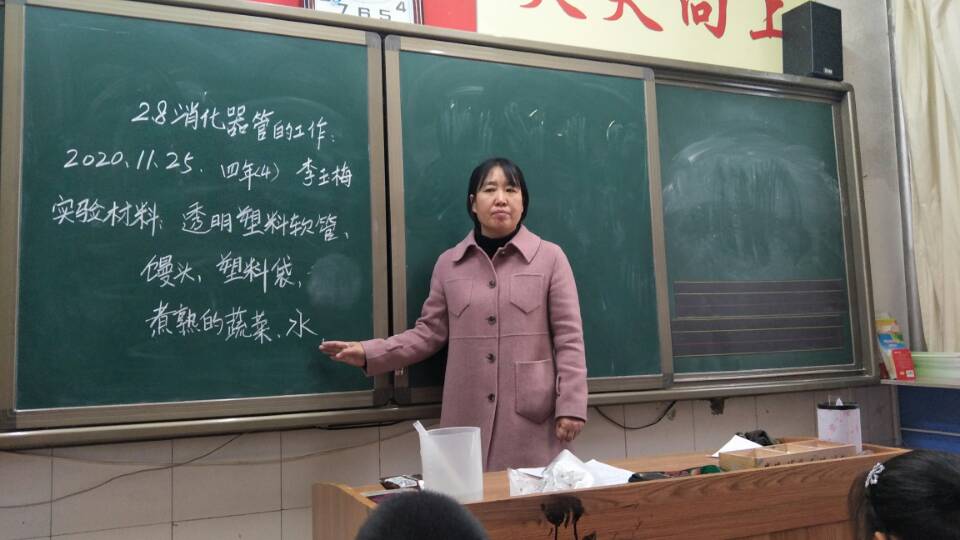 7 6 5 4
天天向上
2.8消化器管的工作:
2020.11.25. 四年(4) 李玉梅
实验材料:透明塑料软管、
馒头、塑料袋、
煮熟的蔬菜、水